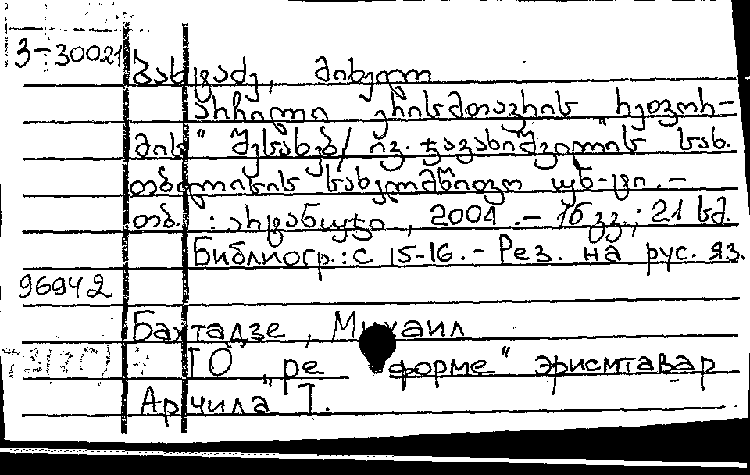 3-30021
ბახტაძე, მიხეილ
არჩილ I ერისმთავრის "რეფორ-
მის" შესახებ/ ივ. ჯავახიშვილის სახ.
თბილისის სახელმწიფო უნ-ტი. -
თბ. : არტანუჯი, 2001. - 16 გვ.; 21 სმ.
Библиогр.: с 15-16. - Рез. на рус. яз.
96942
Бахтадзе, Михаил
"ре форме" эрисмтавар
Арчила I.